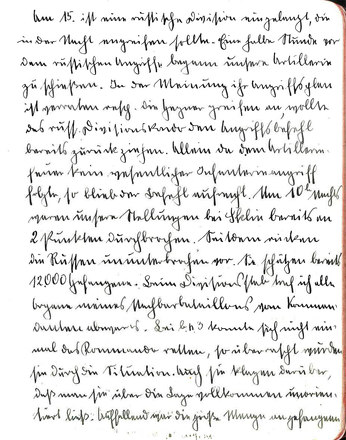 Am 15. ist eine russische Division eingelangt, die
in der Nacht angreifen sollte. Eine halbe Stunde vor
dem russischen Angriffe begann unsere Artillerie
zu schießen. In der Meinung ihr Angriffsplan
ist verraten resp. die Gegner greifen an, wollte
das russ. Divisionskmdo den Angriffsbefehl
bereits zurückziehen. Allein da dem Artillerie-
feuer kein wesentlicher Infanterieangriff
folgte, so blieb der Befehl aufrecht. Um 10h Nachts
waren unsere Stellungen bei Sklin bereits an
2 Punkten durchbrochen. Seitdem rücken
die Russen ununterbrochen vor. Sie schätzen bereits
12000 Gefangene. Beim Divisionsstab traf ich alle
Organe meines Nachbarbataillons vom Komman-
danten abwärts. Bei konnte sich nicht ein-
mal das Kommando retten, so überrascht wurden
sie durch die Situation. Auch sie klagen darüber,
daß man sie über die Lage vollkommen unorien-
tiert ließ. Auffallend war die große Menge an gefangenen